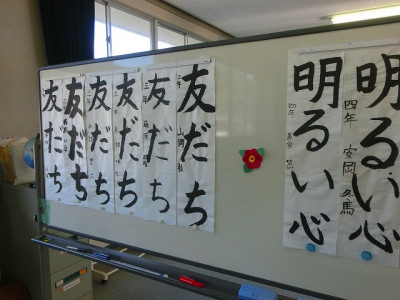 友だち
友だち
友だち
友だち
友だち
三年
友だち
三年 山岡
明るい心
四年
明るい心
四年 安岡 冬馬